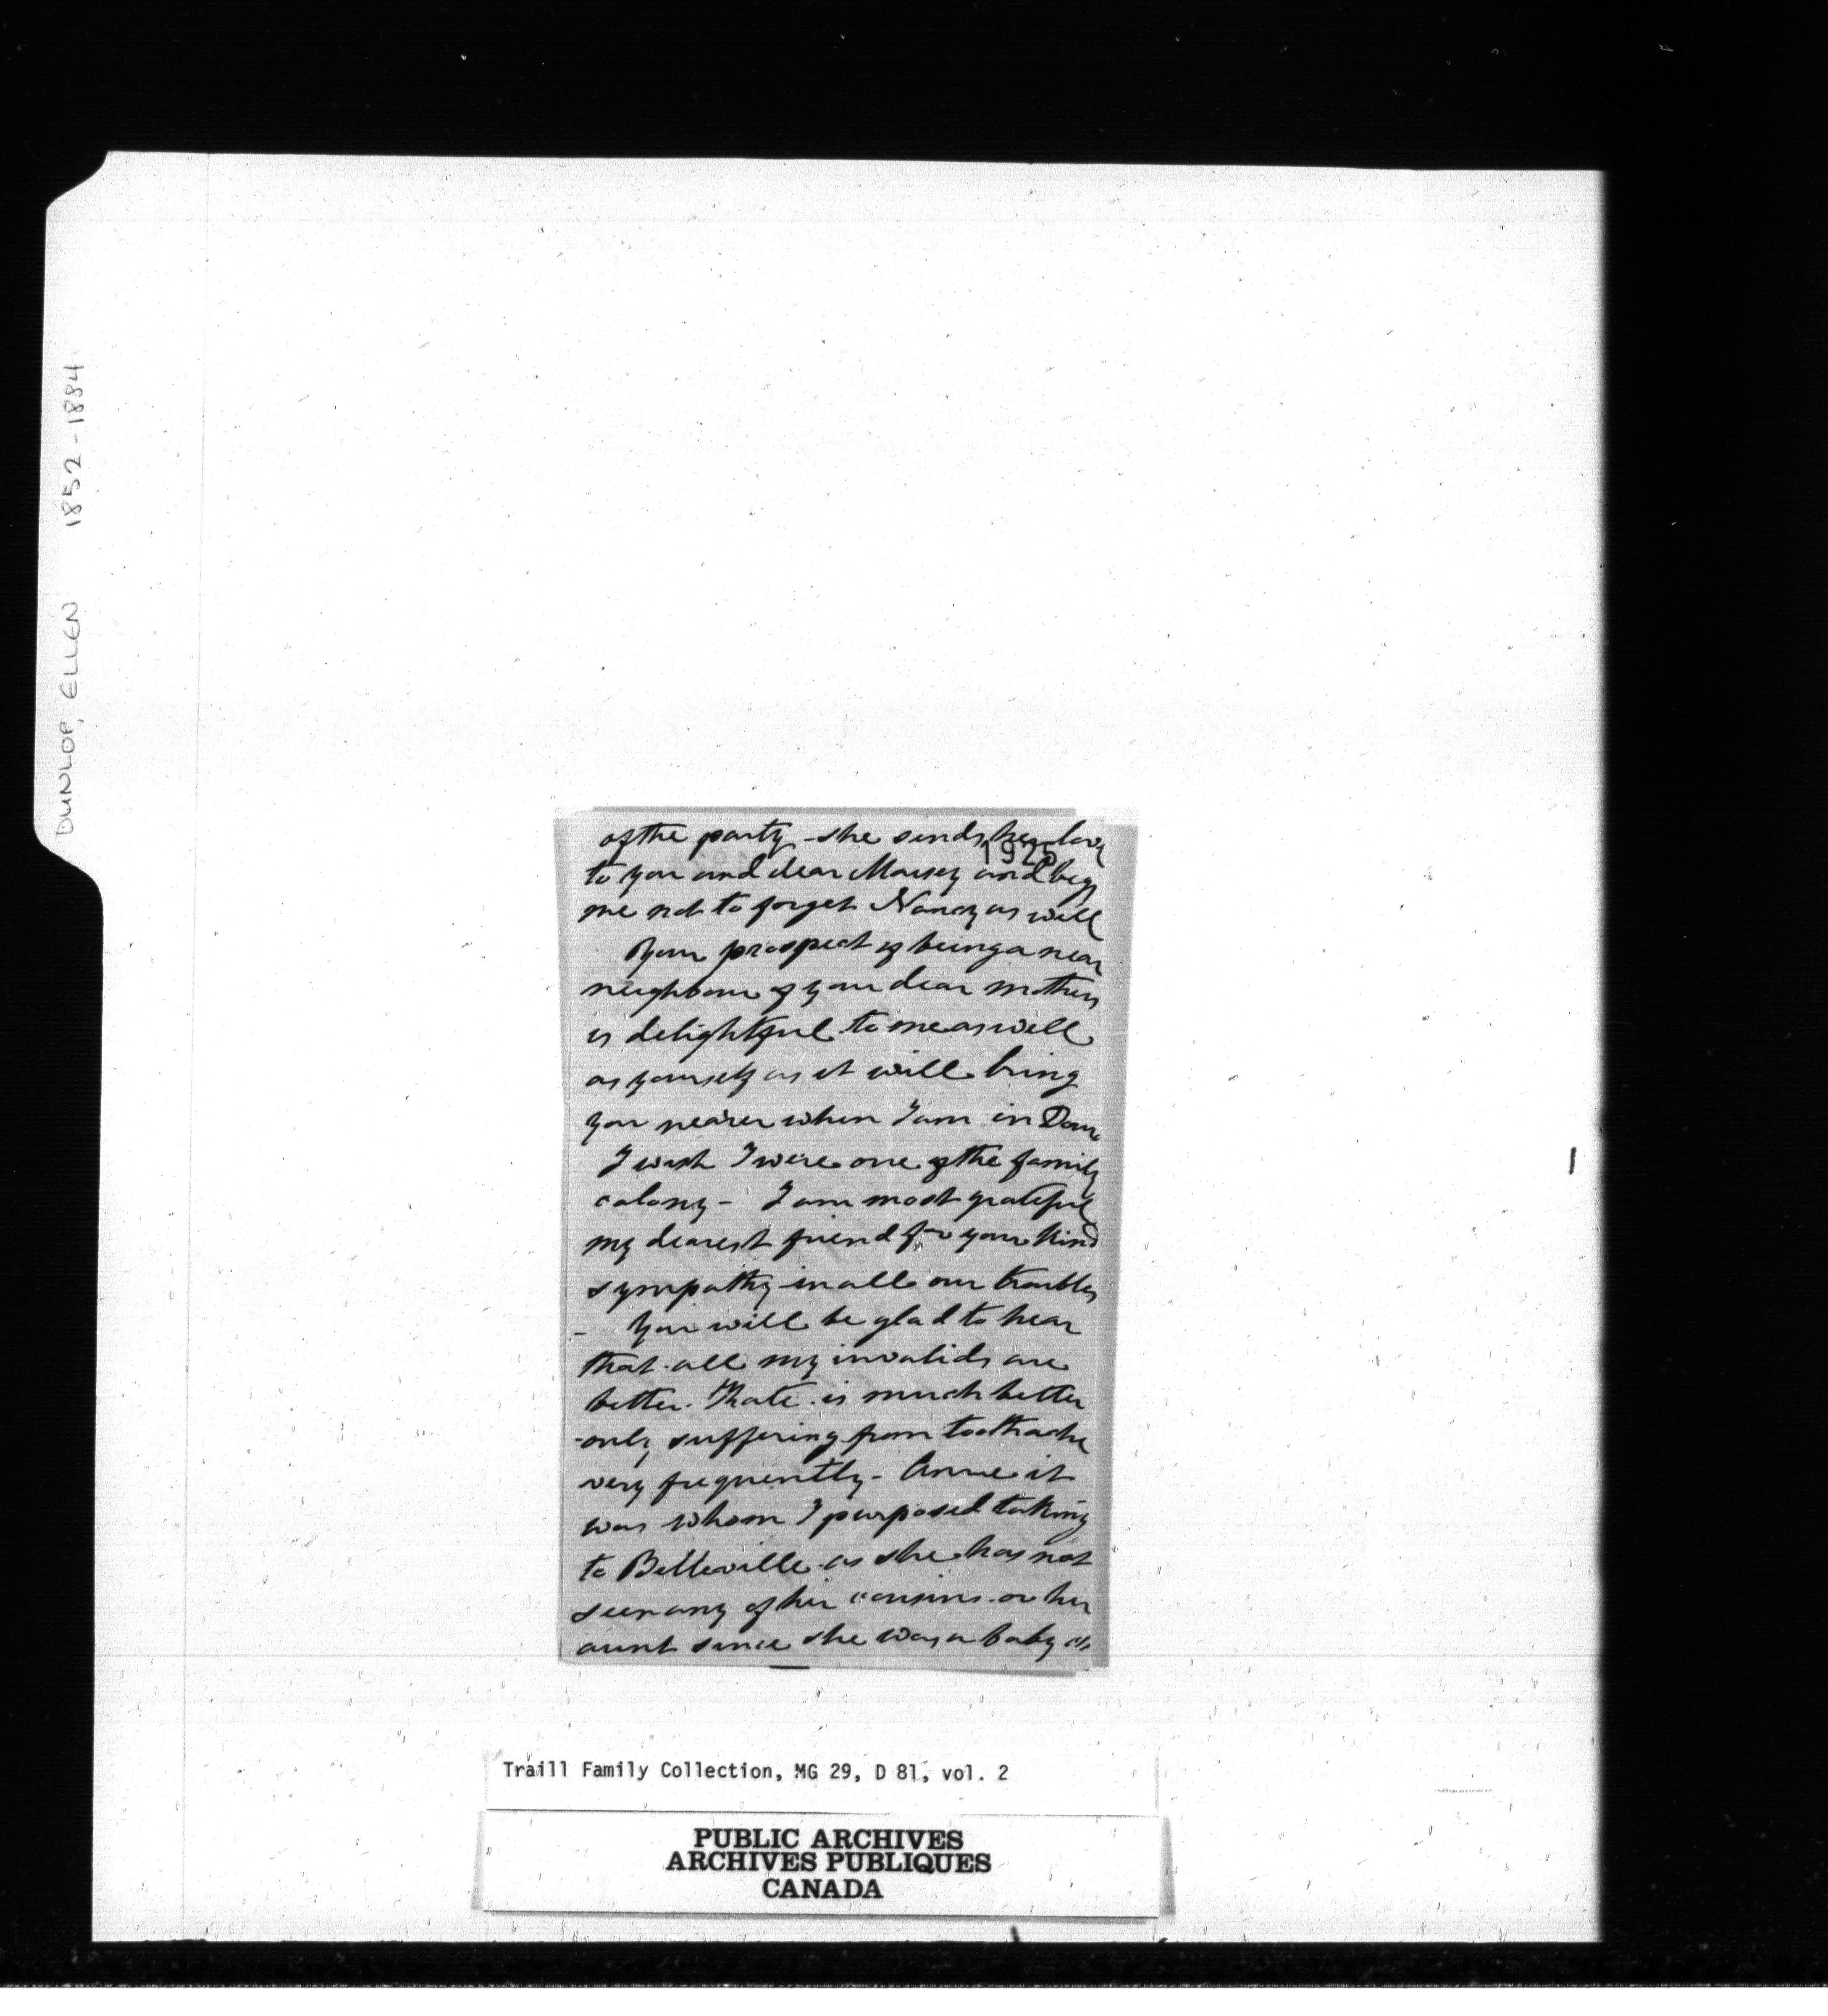 DUNLOP, ELLEN 1852-1884
of the party - she sends her love
1925
to you and dear Maisey and begs
me not to forget Nancy as well
Your prospect of being a near
neighbour of your dear mothers
is delightful to me as well
as yourself as it will bring
you nearer when I am in Dour
I wish I were one of the family
colony - I am most grateful
my dearest friend for your kind
sympathy in all our troubles
- You will be glad to hear
that all my invalids are
better. Kate is much better
only suffering from toothache
very frequently - Annie it
was whom I purposed taking
to Belleville as she has not
seen any of her cousins or her
aunt since she was a baby
Traill Family Collection, MG 29, D 81, vol. 2
PUBLIC ARCHIVES
ARCHIVES PUBLIQUES
CANADA